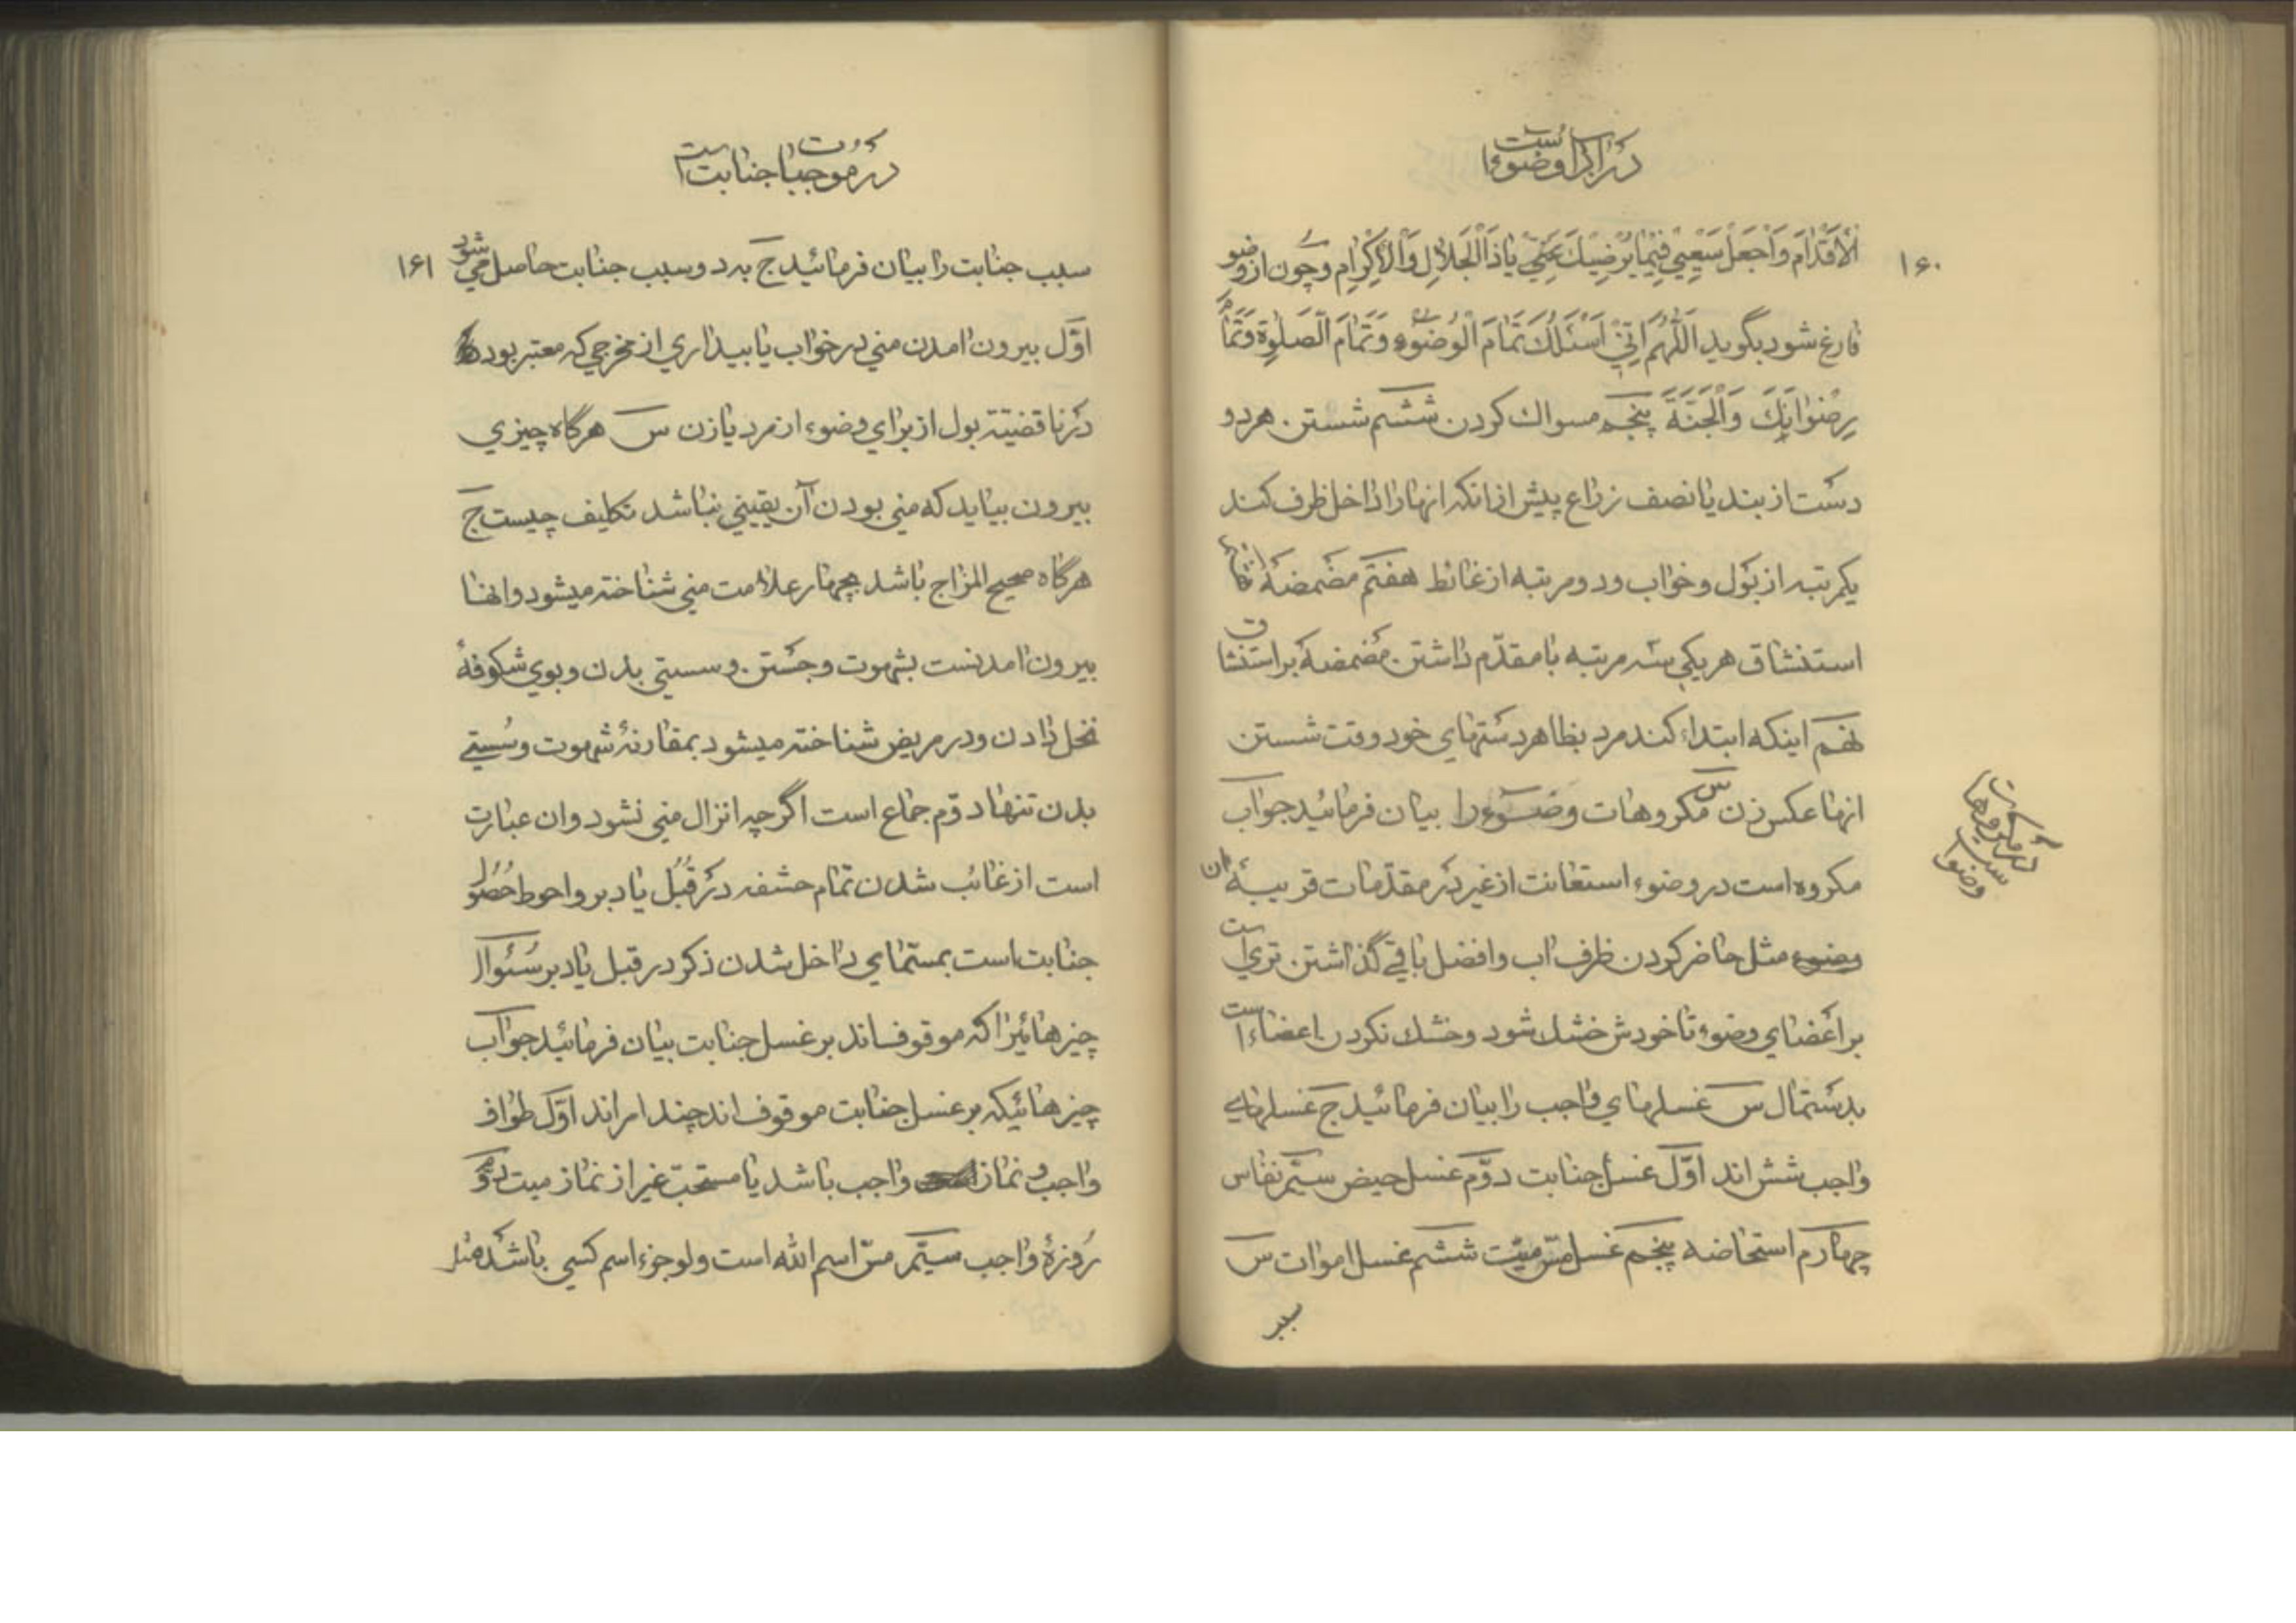 در آداب وضوء است
۱۶۰
الْاَقْدٰامَ وَاجْعَلْ سَعْیِي فِیمٰا یُرْضِیكَ عَنّي یٰا ذَالْجَلٰالِ وَالْاِکْرٰامِ و چون از وضو
فٰارغ شود بگوید اَللّٰهُمَّ اِنّي اَسْئَلُكَ تَمٰامَ الْوُضُوءِ وَتَمٰامَ الصَّلٰوةِ وَتَمٰامَ
رِضْوٰانِكَ وَالْجَنَّةَ پنجم مسواك کردن ششم شستن هر دو
دست از بند یٰا نصف زراع پیش از انکه انها را داخل ظرف کند
یکمرتبه از بَول و خوٰاب و دو مرتبه از غٰائط هفتم مضمضهٔ
استنشٰاق هر یکي سه مرتبه بٰا مقدّم دٰاشتن مضمضه بر استنشٰاق
نهم اینکه ابتدٰاء کند مرد بظٰاهر دستهٰاي خود وقت شستن
انهٰا عکس زن س مکروهات وضوء را بیٰان فرمٰائید جوٰاب
مکروه است در وضوء استعٰانت از غیر در مقدّمٰات قریبهٔ ان
وضوء مثل حٰاضر کردن ظرف اب و افضل بٰاقي گذٰاشتن تري است
بر اعضٰاي وضوء تٰا خودش خشك شود و خشك نکردن اعضٰاء است
بدستمٰال س غسلهٰاي وٰاجب رٰا بیٰان فرمٰائید ج غسلهٰاي
وٰاجب شش اند اوّل غسل جنٰابت دوّم غسل حیض سیّم نفٰاس
چهٰارم استحٰاضه پنجم غسل مسّ میّت ششم غسل اموٰات س
سبب
در مکروهات
وضو است
در موجبات جنابت است
۱۶۱
سبب جنٰابت رٰا بیٰان فرمٰائید ج بدو سبب جنٰابت حٰاصل مي شود
اوّل بیرون امدن مني در خوٰاب یٰا بیدٰاري از مخرجي که معتبر بود
در نٰاقضیّت بول از برٰاي وضوء از مرد یٰا زن س هرگٰاه چیزي
بیرون بیٰاید که مني بودن آن یقیني نبٰاشد تکلیف چیست ج
هرگٰاه صحیح المزٰاج بٰاشد بچهٰار علٰامت مني شنٰاخته میشود و انهٰا
بیرون امدنست بشهوت و جستن و سستي بدن و بوي شکوفهٔ
نخل دٰادن و در مریض شنٰاخته میشود بمقٰارنهٔ شهوت و سُستي
بدن تنهٰا دوّم جمٰاع است اگرچه انزٰال مني نشود و ان عبٰارت
است از غٰائب شدن تمٰام حشفه در قُبُل یٰا دبر و احوط حُصُول
جنٰابت است بمسمّٰاي دٰاخل شدن ذکر در قبل یٰا دبر سئوٰال
چیزهٰائیرٰا که موقوفاند بر غسل جنٰابت بیٰان فرمٰائید جوٰاب
چیزهٰائیکه بر غسل جنٰابت موقوف اند چند امراند اوّل طوٰاف
وٰاجب و نمٰاز وٰاجب بٰاشد یٰا مستحب غیر از نمٰاز میت دوّم
روزهٔ وٰاجب سیّم مسّ اسم اللّٰه است ولو جزء اسم کسي بٰاشد مثل